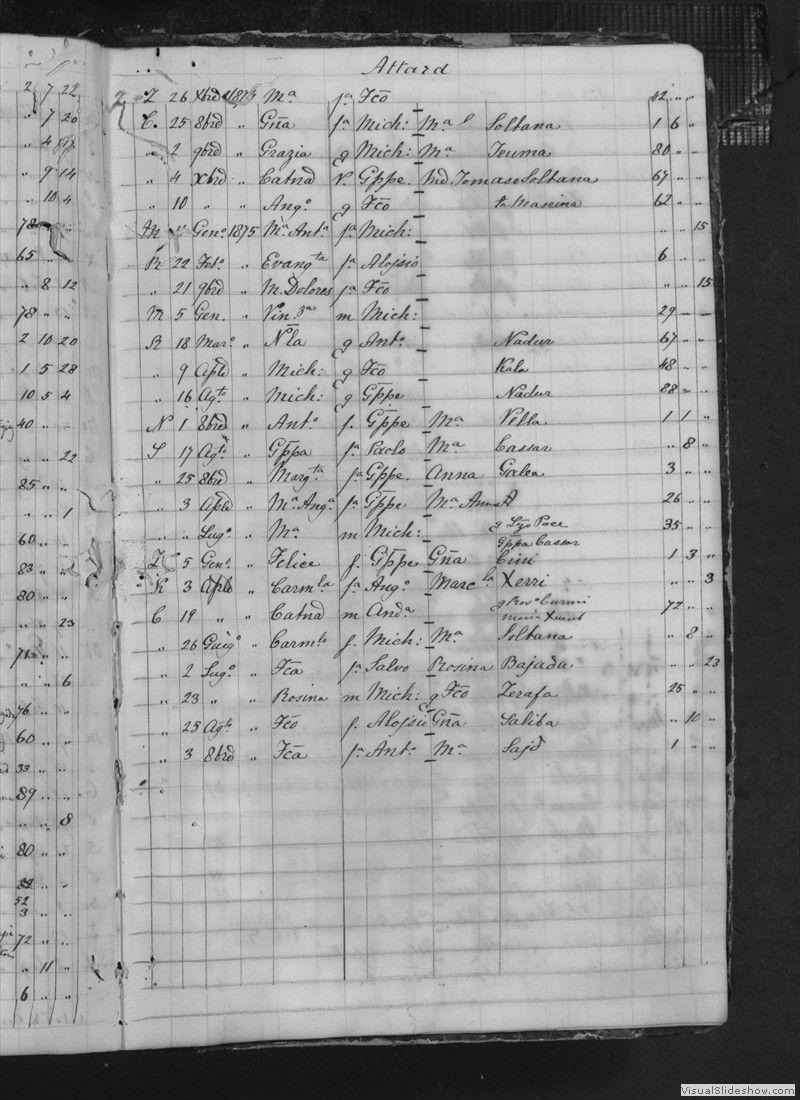 Attard
2 Z 26 Xbre 1874 Ma fa Fco 42 " "
C. 25 8bre " Gña fa Mich: Ma Soltana 1 6 "
" 2 9bre " Grazia g Mich: Ma Teuma 80 " "
" 4 Xbre " Catna v. Gppe. Tomaso Soltana 67 " "
" 10 " " Ango g Fco 62 " "
M " Geno 1875 Ma Anta fa Mich: " " 15
R 22 Febo " Evangta fa Alojsio 6 " "
" 21 9bre " M. Dolores fa Fco " " 15
M 5 Gen. " m Mich: 29 — —
R 18 Maro " Nla g Anto Nadur 67 " "
" 9 Aple " Mich: g Fco Kala 48 " "
" 16 Agto " Mich: g Gppe Nadur 88 " "
N 1 8bre " Anto f. Gppe Ma Vella 1 1 "
S 17 Agto " Gppa fa Paolo Ma Cassar " 8 "
" 25 8bre " Margta fa Gppe. Anna Galea 3 " "
" 3 Aple " Ma Anga fa Gppe Ma Anna A 26 " "
" " Lugo " Ma m Mich: g Pace 35 " "
Gppa Cassar
Z 5 Geno " Felice f. Gppe Gña Cini 1 3 "
K 3 Aple " Carmla fa Ango Marcla Xerri " " 3
C 19 " " Catna m Anda g Curmi 72 " "
" 26 Guigo " Carmlo f. Mich: Ma Soltana " 8 "
" 2 Lugo " Fca fa Salvo Rosina Bajada " " 23
" 23 " " Rosina m Mich: g Fco Zerafa 25 " "
" 25 Agto " Fco f. Alojsio Gña Saliba " 10 "
" 3 8bre " Fca fa Anto Ma Sajd 1 " "
2 7 22
" 7 20
" 9 14
" 10 4
78
65 " "
" 8 12
78 " "
2 10 20
1 5 28
10 5 4
40 " "
" " 22
85 " "
" " 1
60 " "
83 " "
80 " "
" " 23
71 " "
" " 6
46 " "
60 " "
33 " "
89 " "
" " 8
80 " "
52
3 " "
72 " "
" 11 "
6 " "
VisualSlideshow.com